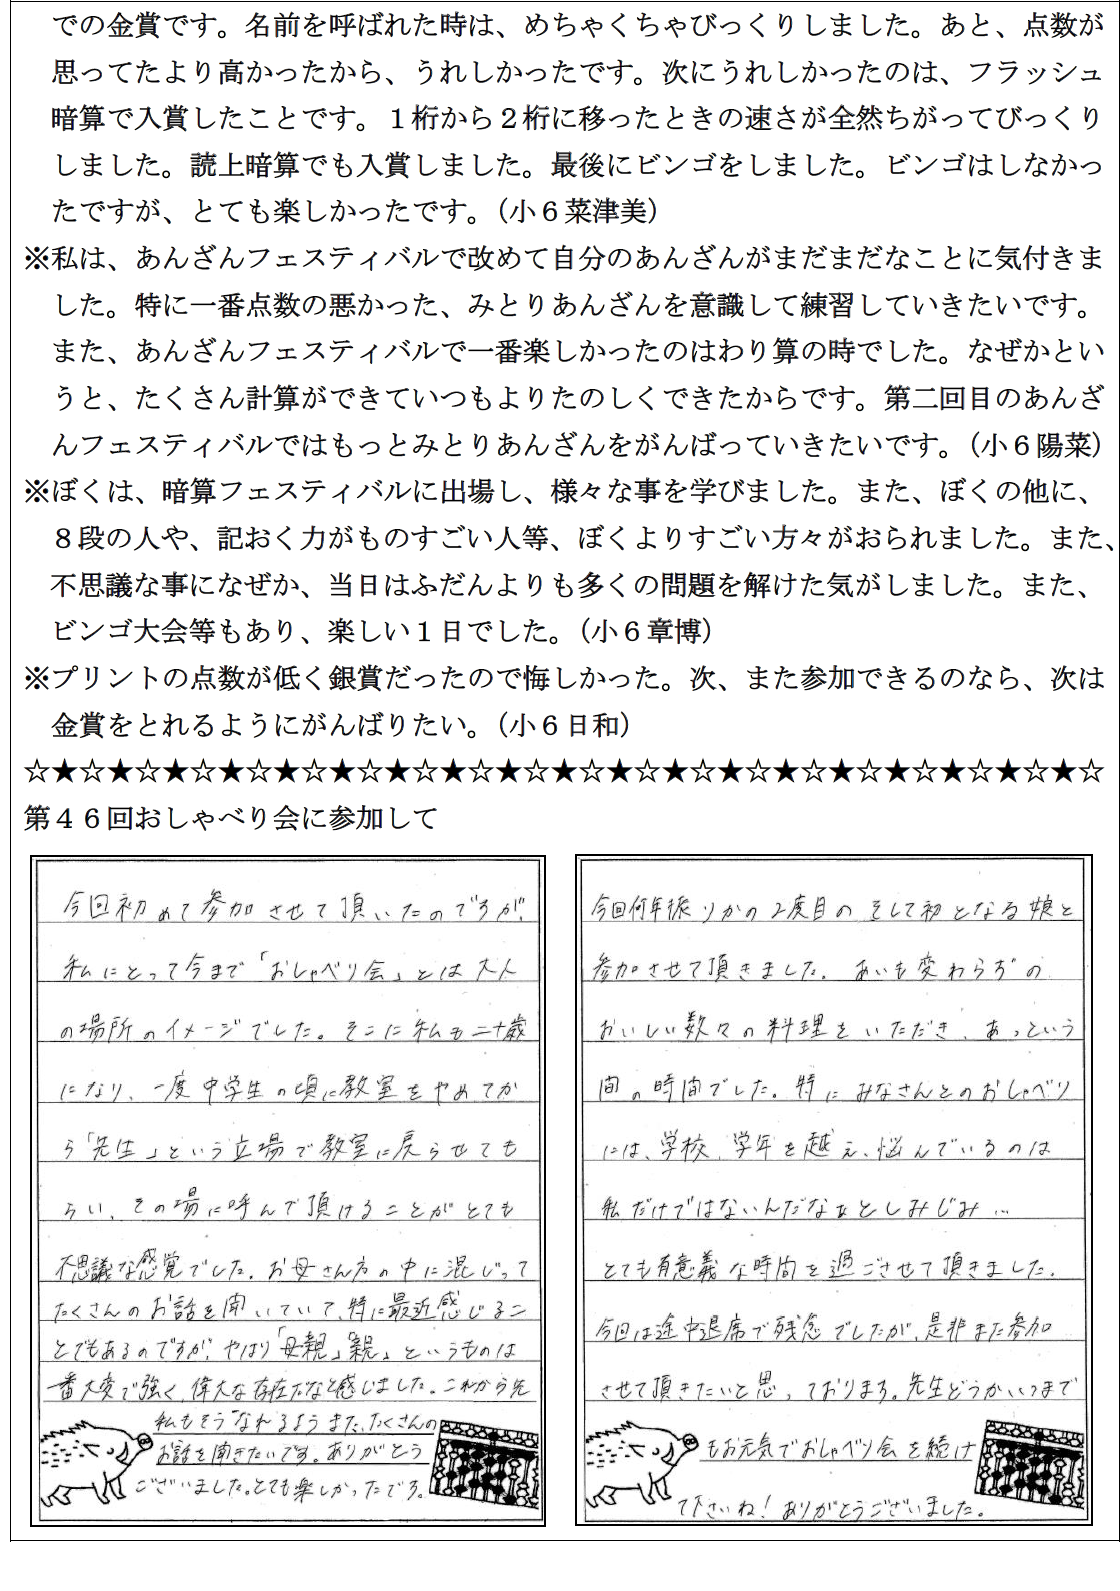 での金賞です。名前を呼ばれた時は、めちゃくちゃびっくりしました。あと、点数が
思ってたより高かったから、うれしかったです。次にうれしかったのは、フラッシュ
暗算で入賞したことです。１桁から２桁に移ったときの速さが全然ちがってびっくり
しました。読上暗算でも入賞しました。最後にビンゴをしました。ビンゴはしなかっ
たですが、とても楽しかったです。（小６菜津美）
※私は、あんざんフェスティバルで改めて自分のあんざんがまだまだなことに気付きま
した。特に一番点数の悪かった、みとりあんざんを意識して練習していきたいです。
また、あんざんフェスティバルで一番楽しかったのはわり算の時でした。なぜかとい
うと、たくさん計算ができていつもよりたのしくできたからです。第二回目のあんざ
んフェスティバルではもっとみとりあんざんをがんばっていきたいです。（小６陽菜）
※ぼくは、暗算フェスティバルに出場し、様々な事を学びました。また、ぼくの他に、
８段の人や、記おく力がものすごい人等、ぼくよりすごい方々がおられました。また、
不思議な事になぜか、当日はふだんよりも多くの問題を解けた気がしました。また、
ビンゴ大会等もあり、楽しい１日でした。（小６章博）
※プリントの点数が低く銀賞だったので悔しかった。次、また参加できるのなら、次は
金賞をとれるようにがんばりたい。（小６日和）
☆★☆★☆★☆★☆★☆★☆★☆★☆★☆★☆★☆★☆★☆★☆★☆★☆★☆★☆★☆
第４６回おしゃべり会に参加して
今回初めて参加させて頂いたのですが、
私にとって今まで「おしゃべり会」とは大人
の場所のイメージでした。そこに私も二十歳
になり、一度中学生の頃に教室をやめてか
ら「先生」という立場で教室に戻らせても
らい、その場に呼んで頂けることがとても
不思議な感覚でした。お母さん方の中に混じって
たくさんのお話を聞いていて、特に最近感じるこ
とでもあるのですが、やはり「母親」「親」というものは
一番大変で強く、偉大な存在だなと感じました。これから先
私もそうなれるようまた、たくさんの
お話を聞きたいです。ありがとう
ございました。とても楽しかったです。
今回何年振りかの２度目のそして初となる娘と
参加させて頂きました。あいも変わらずの
おいしい数々の料理をいただき、あっという
間の時間でした。特にみなさんとのおしゃべり
には、学校、学年を越え、悩んでいるのは
私だけではないんだなぁとしみじみ…
とても有意義な時間を過ごさせて頂きました。
今回は途中退席で残念でしたが、是非また参加
させて頂きたいと思っております。先生どうかいつまで
もお元気でおしゃべり会を続け
て下さいね！ありがとうございました。